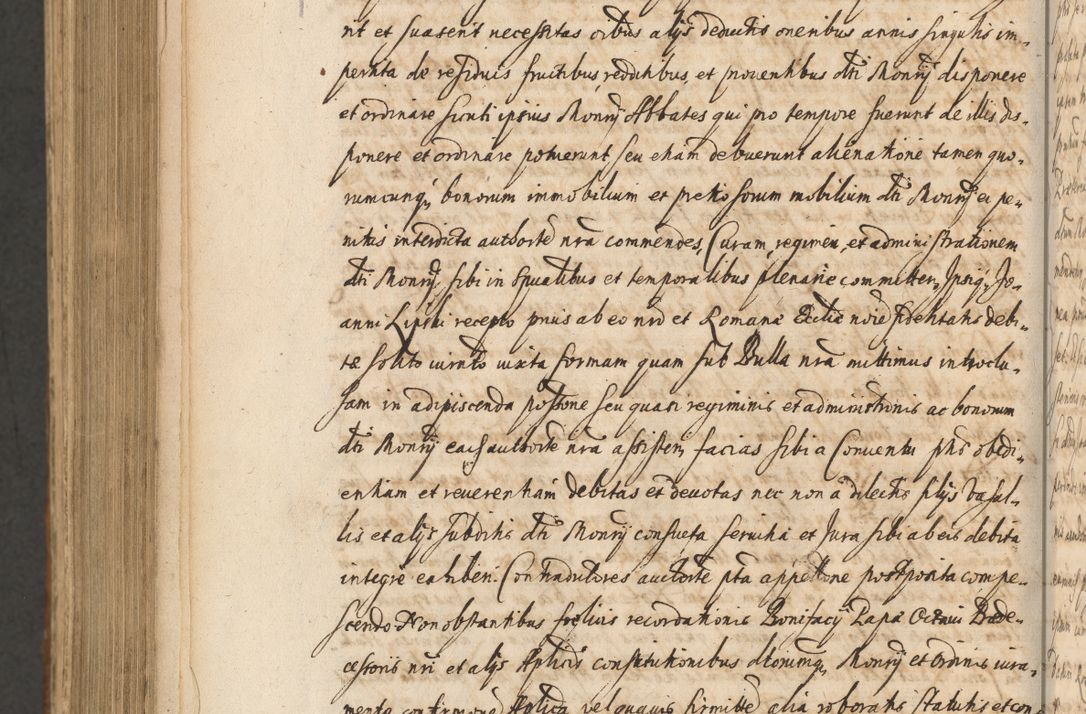 nt et suaserit necessitas orbus alijs deductis oneribus annis singulis im-
pertita de residuis fructibus, redditibus, et prouentibus dti Monrij disponere
et ordinare sicuti ipsius Monrij Abbates qui pro tempore fuerunt de illis dis-
ponere et ordinare potuerunt seu etiam debuerunt alienatione tamen quo-
rumcunq, bonorum immobilium et pretiosorum mobilium dti Monrij ei pe-
nitus interdicta authorte nra commendes, Curam, regimen, et administrationem
dti Monrij sibi in spualibus et temporalibus plenarie committen, Ipsiq, Jo-
anni Lipski recepto prius ab eo nro et Romanæ Ecclie noie fidelitatis debi-
tæ solito iurnto iuxta formam quam sub Bulla nra mittimus introclu-
sam in adipiscenda possone seu quasi regiminis et administronis ac bonorum
dti Monrij ead authorte nra assisten, facias sibi a Conuentu phs obedi-
entiam et reuerentiam debitas et deuotas nec non a dilectis filijs Vasal-
lis et alijs subditis dti Monrij consueta seruitia et Jura sibi ab eis debita
integre exhiberi. Contradictores auctorte pta appellone postposita compe-
scendo Non obstantibus felicis recordationis Bonifacij Papæ Octaui Præde-
cessoris nri et alijs Aplicis constitutionibus dtorumq, Monrij et Ordinis iura-
mento confirmone Aplica vel quauis firmitte alia roboratis statutis et con-